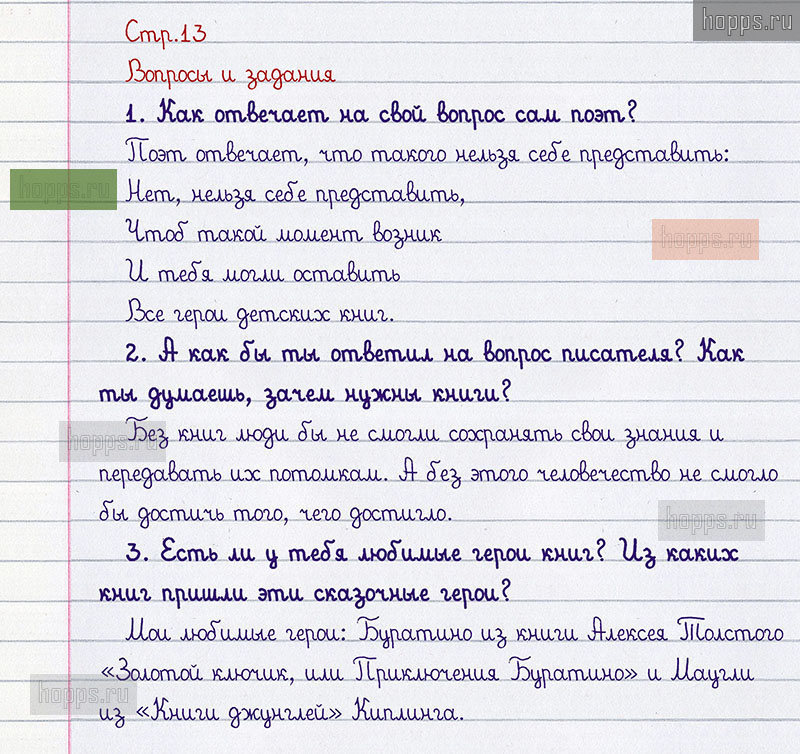 hopps.ru
Стр.13
Вопросы и задания
1. Как отвечает на свой вопрос сам поэт?
Поэт отвечает, что такого нельзя себе представить:
hopps.ru
Нет, нельзя себе представить,
Чтоб такой момент возник
hopps.ru
И тебя могли оставить
Все герои детских книг.
2. А как бы ты ответил на вопрос писателя? Как
ты думаешь, зачем нужны книги?
hopps.ru
Без книг люди бы не смогли сохранять свои знания и
передавать их потомкам. А без этого человечество не смогло
бы достичь того, чего достигло.
hopps.ru
3. Есть ли у тебя любимые герои книг? Из каких
книг пришли эти сказочные герои?
Мои любимые герои: Буратино из книги Алексея Толстого
«Золотой ключик, или Приключения Буратино» и Маугли
hopps.ru
из «Книги джунглей» Киплинга.